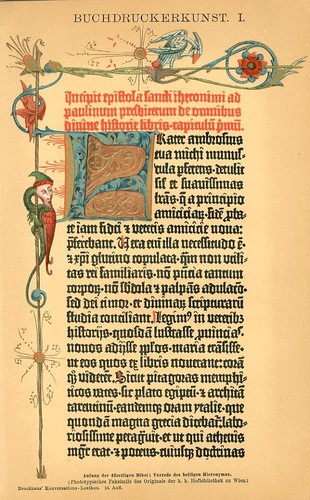 BUCHDRUCKERKUNST. I.
Incipit epistola sancti iheronimi ad
paulinum presbiterum de omnibus
divine historie libris. capitulū pmū.
Frater ambrosius
tua michi munus-
cula pferens. detulit
sil' et suavissimas
lr̄as. q̄ a principio
amicicia�. fidē pba-
te iam fidei & veteris amicicie nova:
pferebant. Vera enī illa necessitudo ē.
& xp̄i glutino copulata. qm̄ non utili-
tas rei familiaris. nō pn̄tia tantum
corpoꝝ. nō sb̄dola & palpās adulacō.
sed dei timor. et divinaꝝ scripturarū
studia conciliant. Legim⁹ in veterib⁹
historijs. quosdā lustrasse ꝓvincias.
novos adijsse pplos. maria trāsisse.
ut eos quos ex libris noverant: coram
q̄� viderēt. Sicut pitagoras memphi-
ticos vates. sic plato egiptū. & architā
tarentinū. eandemq̄ oram ytalie. que
quondā magna grecia dicebat�: labo-
riosissime peragivit. et ut qui athenis
mgr̄ erat. & potens. cuiusq̄ doctrinas
Anfang der 42zeiligen Bibel: Vorrede des heiligen Hieronymus.
(Phototypisches Faksimile des Originals der k. k. Hofbibliothek zu Wien.)
Brockhaus' Konversations-Lexikon. 14. Aufl.